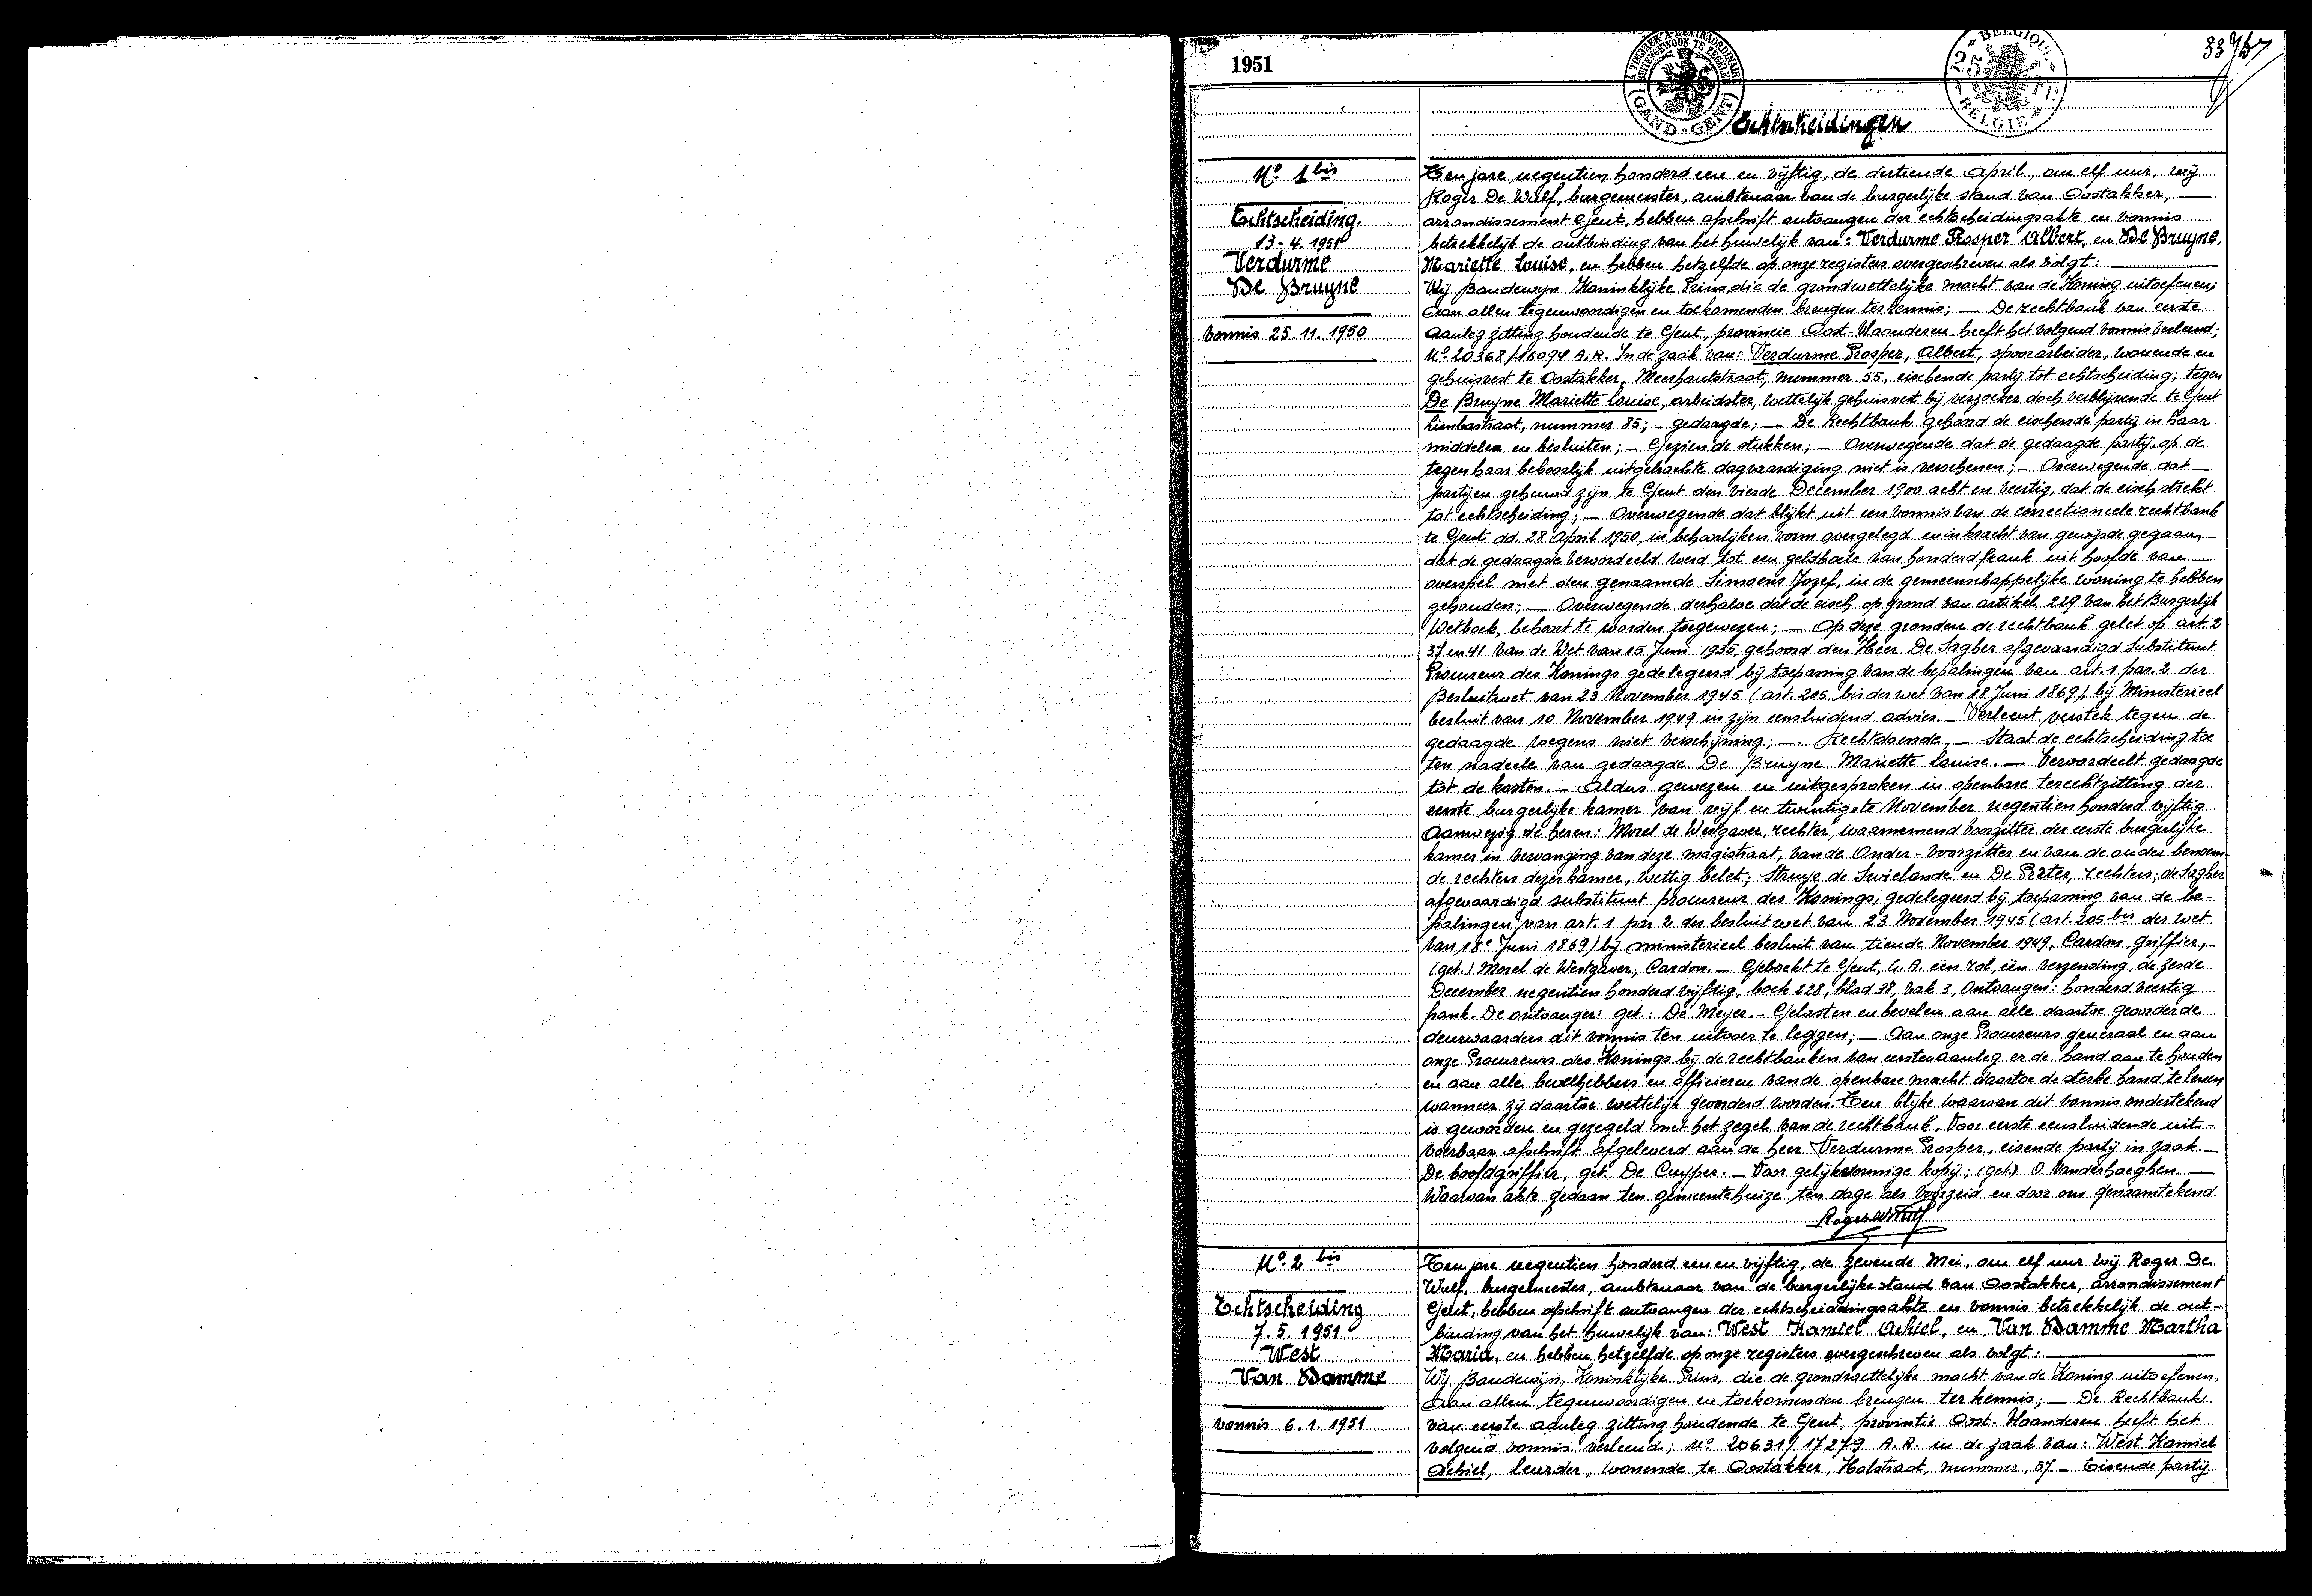 1951
A TIMBRER A L'EXTRAORDINAIRE
BUITENGEWOON TE ZEGELEN
GAND - GENT
BELGIQUE
25 FR
BELGIE
Echtscheidingen
N° 1 bis
Echtscheiding.
13-4.1951
Verdurme
De Bruyne
Vonnis 25.11.1950
Ten jare negentien honderd een en vijftig, de dertiende April, om elf uur, wij
Roger De Wulf, burgemeester, ambtenaar van de burgerlijke stand van Oostakker, —
arrondissement Gent, hebben afschrift ontvangen der echtscheidingsakte en vonnis
betrekkelijk de ontbinding van het huwelijk van: Verdurme Prosper Albert, en De Bruyne.
Mariette Louise, en hebben hetzelfde op onze registers overgeschreven als volgt: —
Wij Boudewijn Koninklijke Prins, die de grondwettelijke macht van de Koning uitoefenen;
Aan allen tegenwoordigen en toekomenden brengen ter kennis; — De rechtbank van eerste
Aanleg zitting houdende te Gent, provincie Oost-Vlaanderen heeft het volgend vonnis verleend;
N° 20368/16094 A.R. In de zaak van: Verdurme Prosper, Albert, spoorarbeider, wonende en
gehuisvest te Oostakker, Meerhoutstraat, nummer 55, eischende partij tot echtscheiding; tegen
De Bruyne Mariette Louise, arbeidster, wettelijk gehuisvest bij verzoeker doch verblijvende te Gent
Limbastraat, nummer 85; - gedaagde; — De Rechtbank gehoord de eischende partij in haar
middelen en besluiten; — Gezien de stukken; — Overwegende dat de gedaagde partij, op de
tegen haar behoorlijk uitgebrachte dagvaardiging niet is verschenen; — Overwegende dat —
partijen gehuwd zijn te Gent den vierde December 1900 acht en veertig, dat de eisch strekt
tot echtscheiding; — Overwegende dat blijkt uit een vonnis van de correctioneele rechtbank
te Gent dd. 28 April 1950, in behoorlijken vorm overgelegd en in kracht van gewijsde gegaan, —
dat de gedaagde veroordeeld werd tot een geldboete van honderd frank uit hoofde van —
overspel met den genaamde Simoens Jozef, in de gemeenschappelijke woning te hebben
gehouden; — Overwegende derhalve dat de eisch op grond van artikel 229 van het Burgerlijk
Wetboek, behoort te worden toegewezen; — Op deze gronden de rechtbank gelet op art. 2
37 en 41 van de Wet van 15 Juni 1935, gehoord den Heer De Sagher afgevaardigd Substituut
Procureur des Konings gedelegeerd bij toepassing van de bepalingen van art. 1 par. 2 der
Besluitwet van 23 November 1945 (art. 205 bis der wet van 18 Juni 1869), bij Ministerieel
besluit van 10 November 1949 in zijn eensluidend advies. — Verleent verstek tegen de
gedaagde wegens niet verschijning; — Rechtdoende, — Staat de echtscheiding toe
ten nadeele van gedaagde De Bruyne Mariette Louise. — Veroordeelt gedaagde
tot de kosten. — Aldus gewezen en uitgesproken in openbare terechtzitting der
eerste burgerlijke kamer van vijf en twintigste November negentien honderd vijftig
Aanwezig de heren: Morel de Westgaver, rechter, waarnemend voorzitter der eerste burgerlijke
kamer in vervanging van deze magistraat, van de Onder-voorzitter en van de ouder benoem-
de rechters dezer kamer, wettig belet; Struye de Swielande en De Prater, rechters; de Sagher
afgevaardigd substituut procureur des Konings, gedelegeerd bij toepassing van de be-
palingen van art. 1 par 2 der besluit wet van 23 November 1945 (art. 205 bis der wet
van 18e Juni 1869) bij ministerieel besluit van tiende November 1949, Cardon, griffier, —
(get.) Morel de Westgaver, Cardon. — Geboekt te Gent, G.A. één rol, één verzending, de zesde
December negentien honderd vijftig, boek 228, blad 38, vak 3, Ontvangen: honderd veertig
frank. De ontvanger: get.: De Meyer. — Gelasten en bevelen aan alle daartoe gevorderde
deurwaarders dit vonnis ten uitvoer te leggen; — Aan onze Procureurs generaal en aan
onze Procureurs des Konings bij de rechtbanken van eersten aanleg er de hand aan te houden
en aan alle bevelhebbers en officieren van de openbare macht daartoe de sterke hand te lenen
wanneer zij daartoe wettelijk gevorderd worden. Ten blijke waarvan dit vonnis ondertekend
is geworden en gezegeld met het zegel van de rechtbank. Voor eerste eensluidende uit-
voerbaar afschrift afgeleverd aan de heer Verdurme Prosper, eisende partij in zaak. —
De hoofdgriffier, get. De Cuyper. — Voor gelijkvormige kopij; (get.) O. Vanderhaeghen. —
Waarvan akte gedaan ten gemeentehuize ten dage als voorzeid en door ons genaamtekend
Roger De Wulf
N° 2 bis
Echtscheiding
7.5.1951
West
Van Damme
Vonnis 6.1.1951
Ten jare negentien honderd een en vijftig, de zevende Mei, om elf uur wij Roger De
Wulf, burgemeester, ambtenaar van de burgerlijke stand van Oostakker, arrondissement
Gent, hebben afschrift ontvangen der echtscheidingsakte en vonnis betrekkelijk de ont-
binding van het huwelijk van: West Kamiel Achiel, en Van Damme Martha
Maria, en hebben hetzelfde op onze registers overgeschreven als volgt: —
Wij Boudewijn, Koninklijke Prins, die de grondwettelijke macht van de Koning uitoefenen,
Aan allen tegenwoordigen en toekomenden brengen ter kennis; — De Rechtbank
van eerste aanleg zitting houdende te Gent, provintie Oost-Vlaanderen heeft het
volgend vonnis verleend; n° 20631/17279 A.R. in de zaak van: West Kamiel
Achiel, leurder, wonende te Oostakker, Holstraat, nummer, 57 — Eisende partij